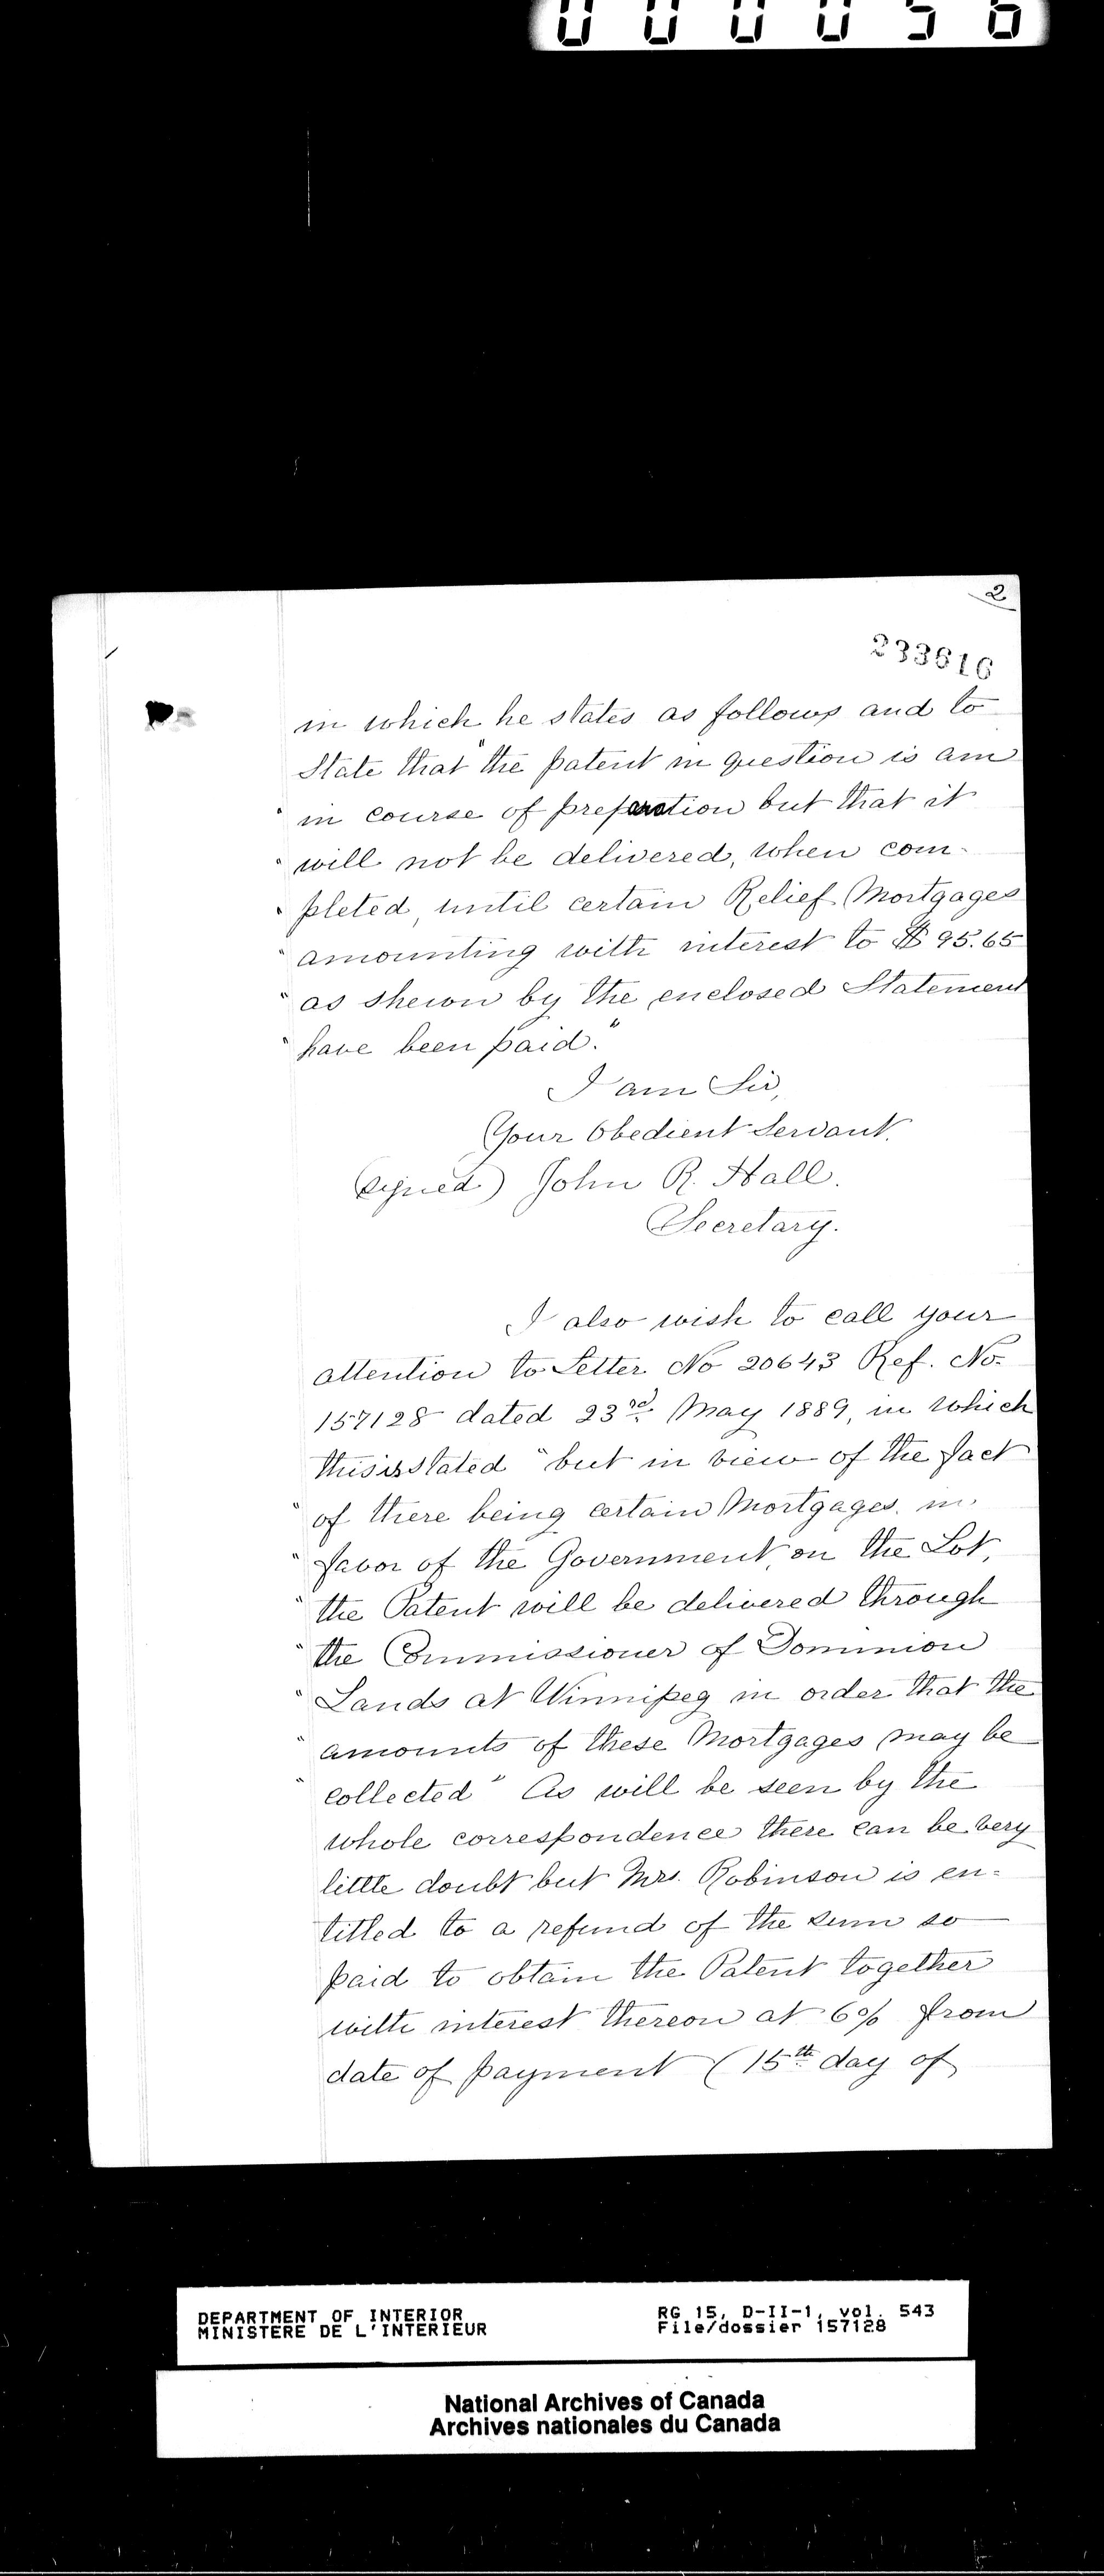 000056
2
233616
in which he states as follows and to
State that "the patent in question is am
" in course of preparation but that it
" will not be delivered, when com-
" pleted, until certain Relief Mortgages
" amounting with interest to $95.65
" as shewn by the enclosed Statement
" have been paid."
I am Sir,
Your Obedient Servant.
(signed) John R. Hall.
Secretary.
I also wish to call your
attention to Letter No 20643 Ref. No.
157128 dated 23rd May 1889, in which
this is stated "but in view of the fact
" of there being certain Mortgages in
" favor of the Government, on the Lot,
" the Patent will be delivered through
" the Commissioner of Dominion
" Lands at Winnipeg in order that the
" amounts of these Mortgages may be
" collected" As will be seen by the
whole correspondence there can be very
little doubt but Mrs. Robinson is en-
titled to a refund of the sum so
paid to obtain the Patent together
with interest thereon at 6% from
date of payment (15th day of
DEPARTMENT OF INTERIOR
MINISTERE DE L'INTERIEUR
RG 15, D-II-1, vol. 543
File/dossier 157128
National Archives of Canada
Archives nationales du Canada